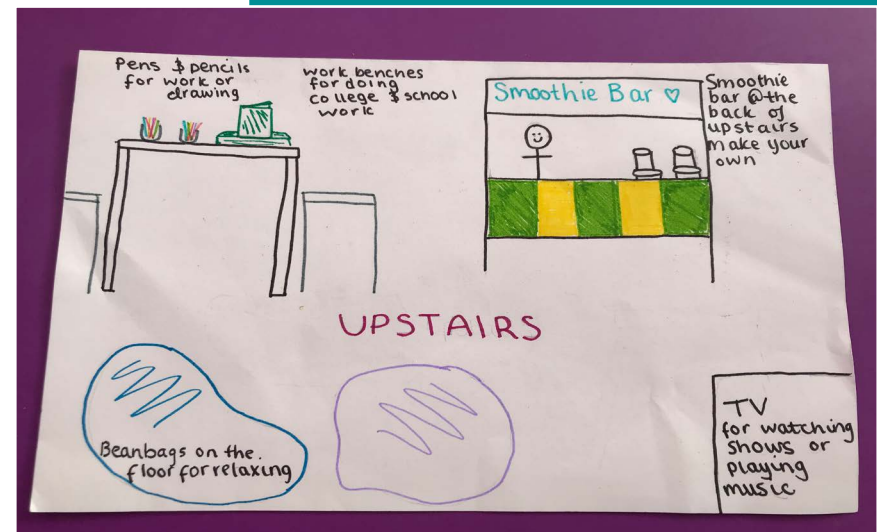 Pens & pencils
for work or
drawing
work benches
for doing
college & school
work
Smoothie Bar ♡
Smoothie
bar @ the
back of
upstairs
make your
own
UPSTAIRS
Beanbags on the.
floor for relaxing
TV
for watching
shows or
playing
music